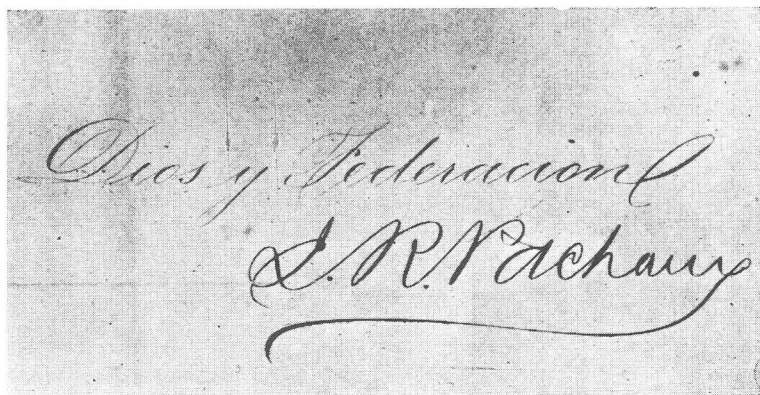 Dios y Federacion
J. R. Pachano